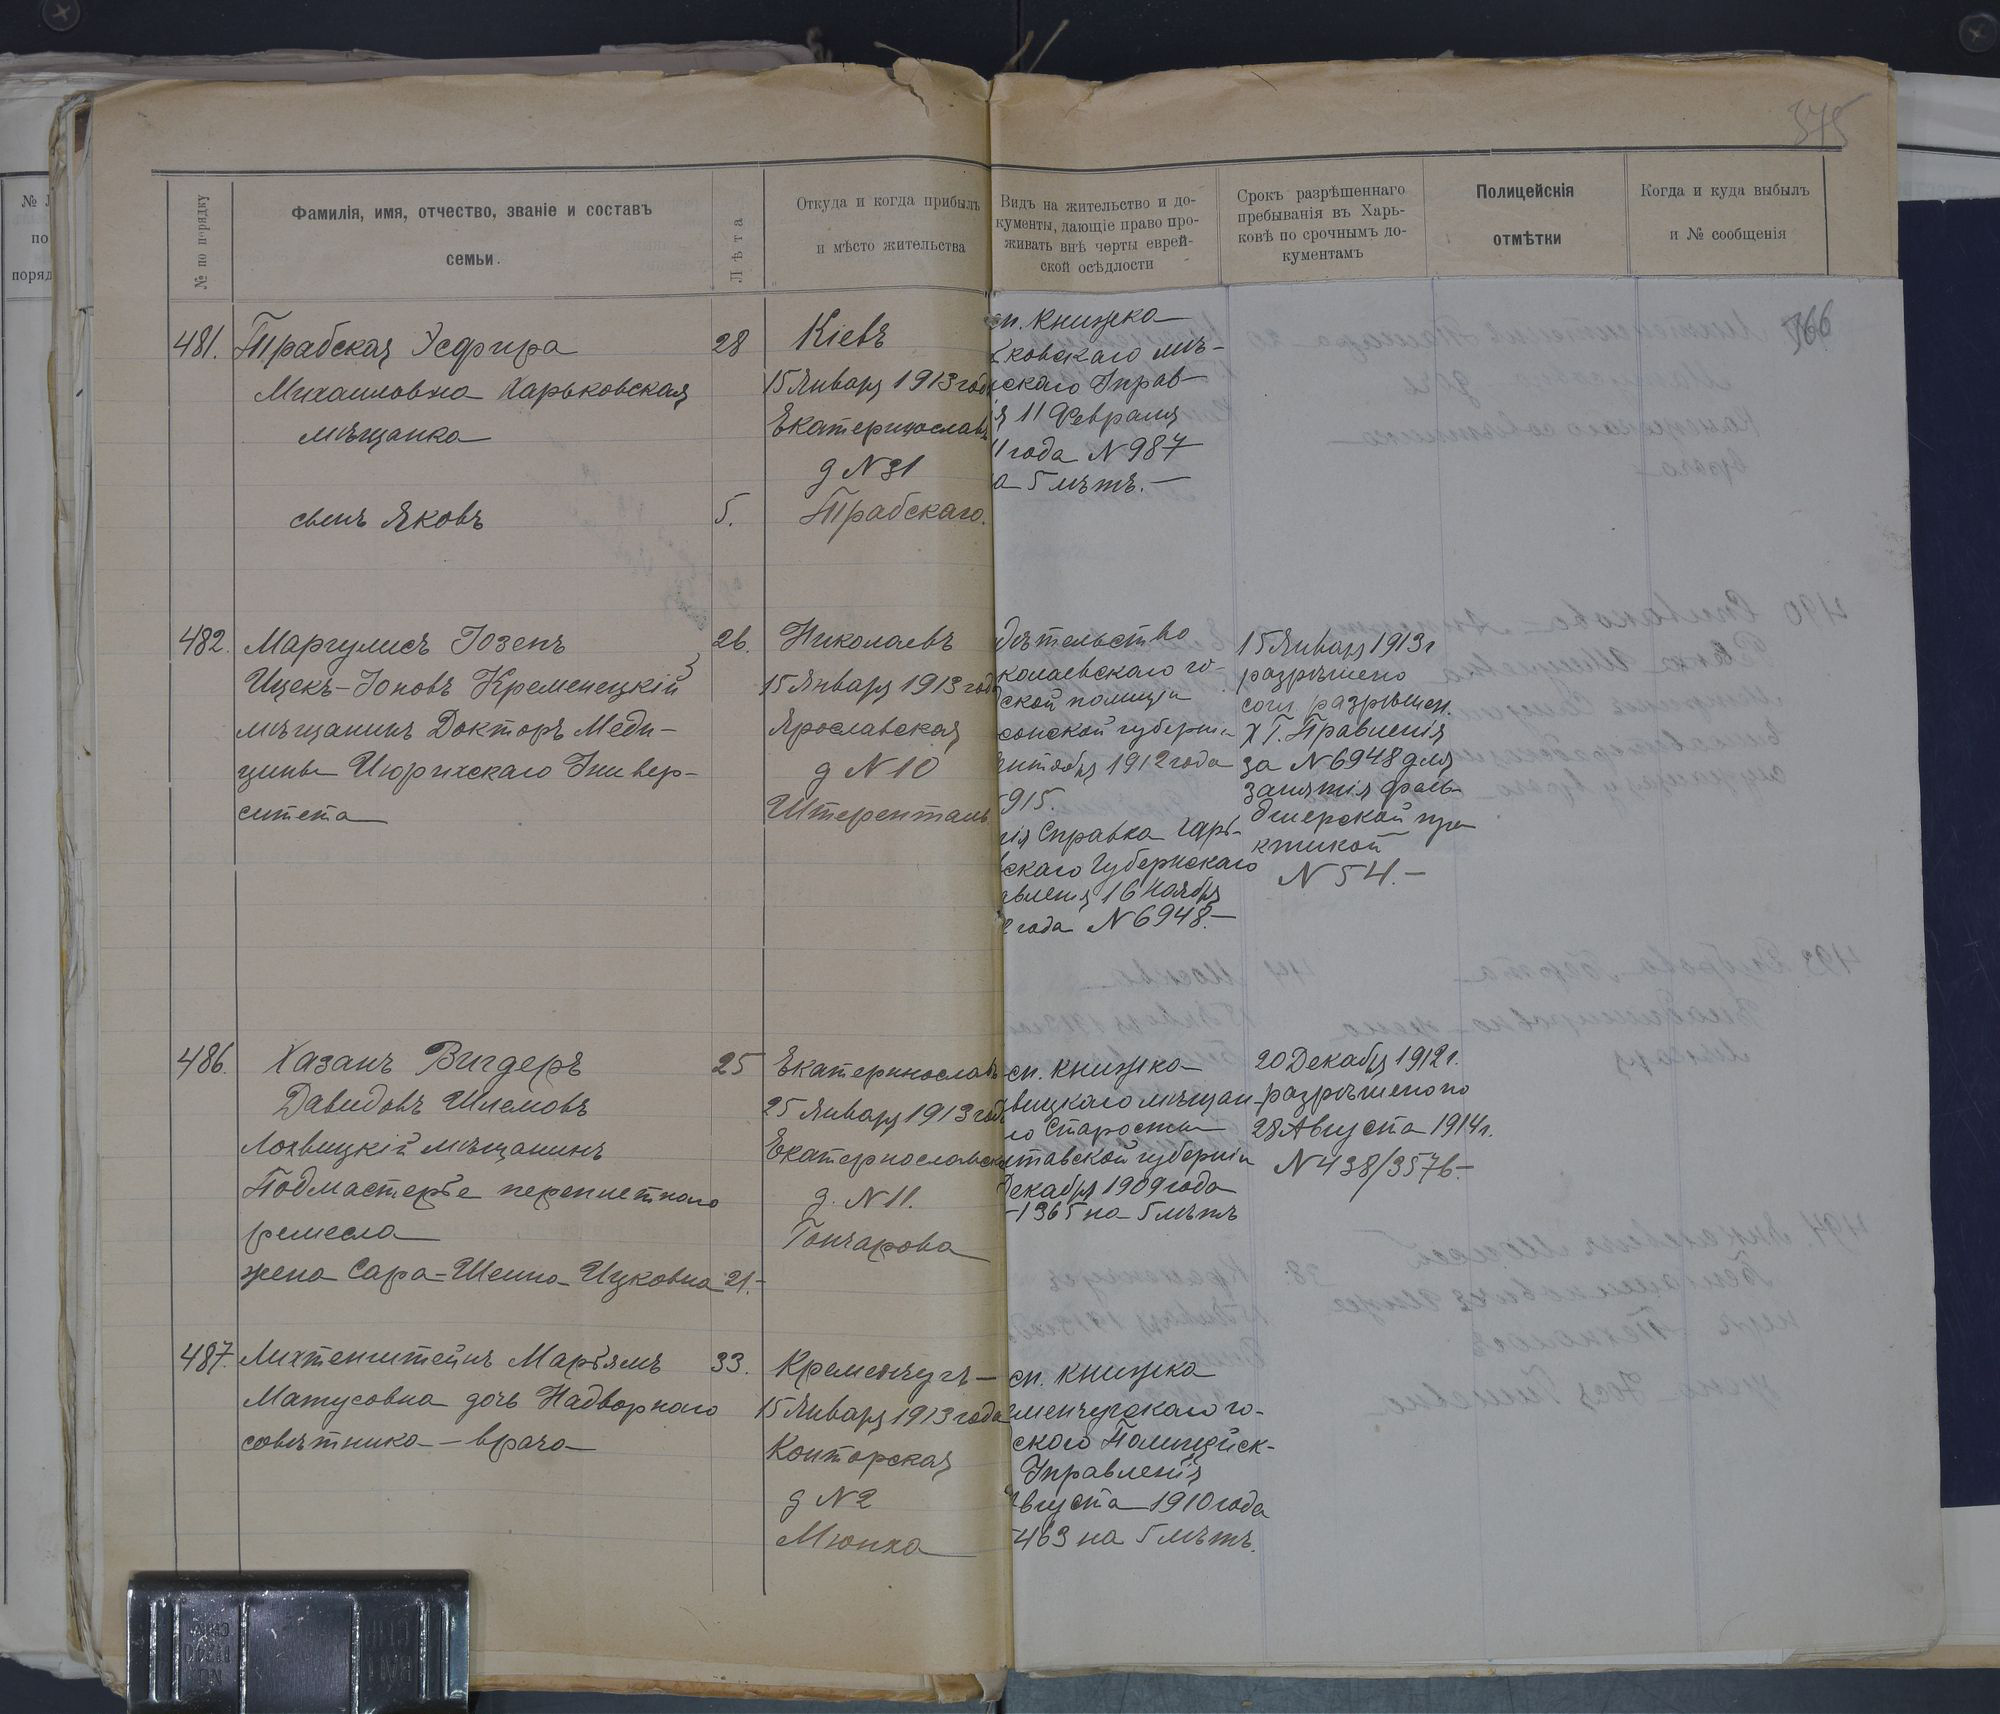 375
№ по порядку
Фамилія, имя, отчество, званіе и составъ
семьи.
Лѣта
Откуда и когда прибылъ
и мѣсто жительства
Видъ на жительство и до-
кументы, дающіе право про-
живать внѣ черты еврей-
ской осѣдлости
Срокъ разрѣшеннаго
пребыванія въ Харь-
ковѣ по срочнымъ до-
кументамъ
Полицейскія
отмѣтки
Когда и куда выбылъ
и № сообщенія
366
481.
Трабская Эсфира
Михаиловна Харьковская
мѣщанка
сынъ Яковъ
28
5.
Кіевъ
15 Января 1913 год
Екатеринослав
д N 31
Трабскаго.
сп. книжка
ковскаго мѣ-
скаго Управ-
я 11 Февраля
1 года N 987
а 5 лѣтъ.—
482.
Маргулисъ Іозепъ
Ицекъ-Іоновъ Кременецкій
мѣщанинъ Докторъ Меди-
цины Цюрихскаго Универ-
ситета
26.
Николаевъ
15 Января 1913 год
Ярославская
д N 10
Штеренталь
дѣтельство
колаевскаго го-
ской полиціи
сонской губерніи
нтября 1912 года
915.
ія Справка Харь-
скаго Губернскаго
авленія 16 Ноября
2 года N 6948.—
15 Января 1913 г
разрѣшено
согл. разрѣшен.
Х Г. Правленія
за N 6948 для
занятія фель-
дшерской пра
ктикой
N 54.—
486.
Хазанъ Вигдеръ
Давидовъ Шлемовъ
Лохвицкій мѣщанинъ
Подмастерье переплетнаго
ремесла
жена Сара-Шейна Ицковна
25
21.-
Екатеринослав
25 Января 1913 год
Екатеринославск
д. N 11.
Гончарова
сп. книжка
вицкаго мѣщан
го Старосты
тавской губерніи
Декабря 1909 года
-1365 на 5 лѣтъ
20 Декабря 1912 г.
разрѣшено по
28 Августа 1914 г.
N 438/3576.-
487.
Лихтенштейнъ Марьямъ
Матусовна дочь Надворнаго
совѣтника — врача
33.
Кременчугъ —
15 Января 1913 года
Конторская
д N 2
Мюнха
сп. книжка
менчугскаго го-
ского Полицейск-
Управленія
вгуста 1910 года
-463 на 5 лѣтъ.